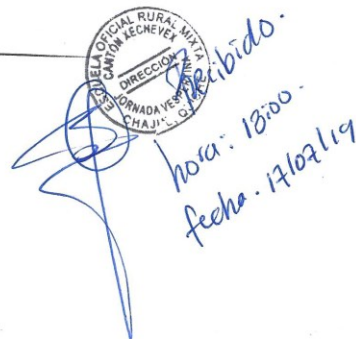 ESCUELA OFICIAL RURAL MIXTA
CANTÓN XECHEVEX
DIRECCIÓN
JORNADA VESPERTINA
Recibido.
hora: 13:00.
fecha. 17/07/19